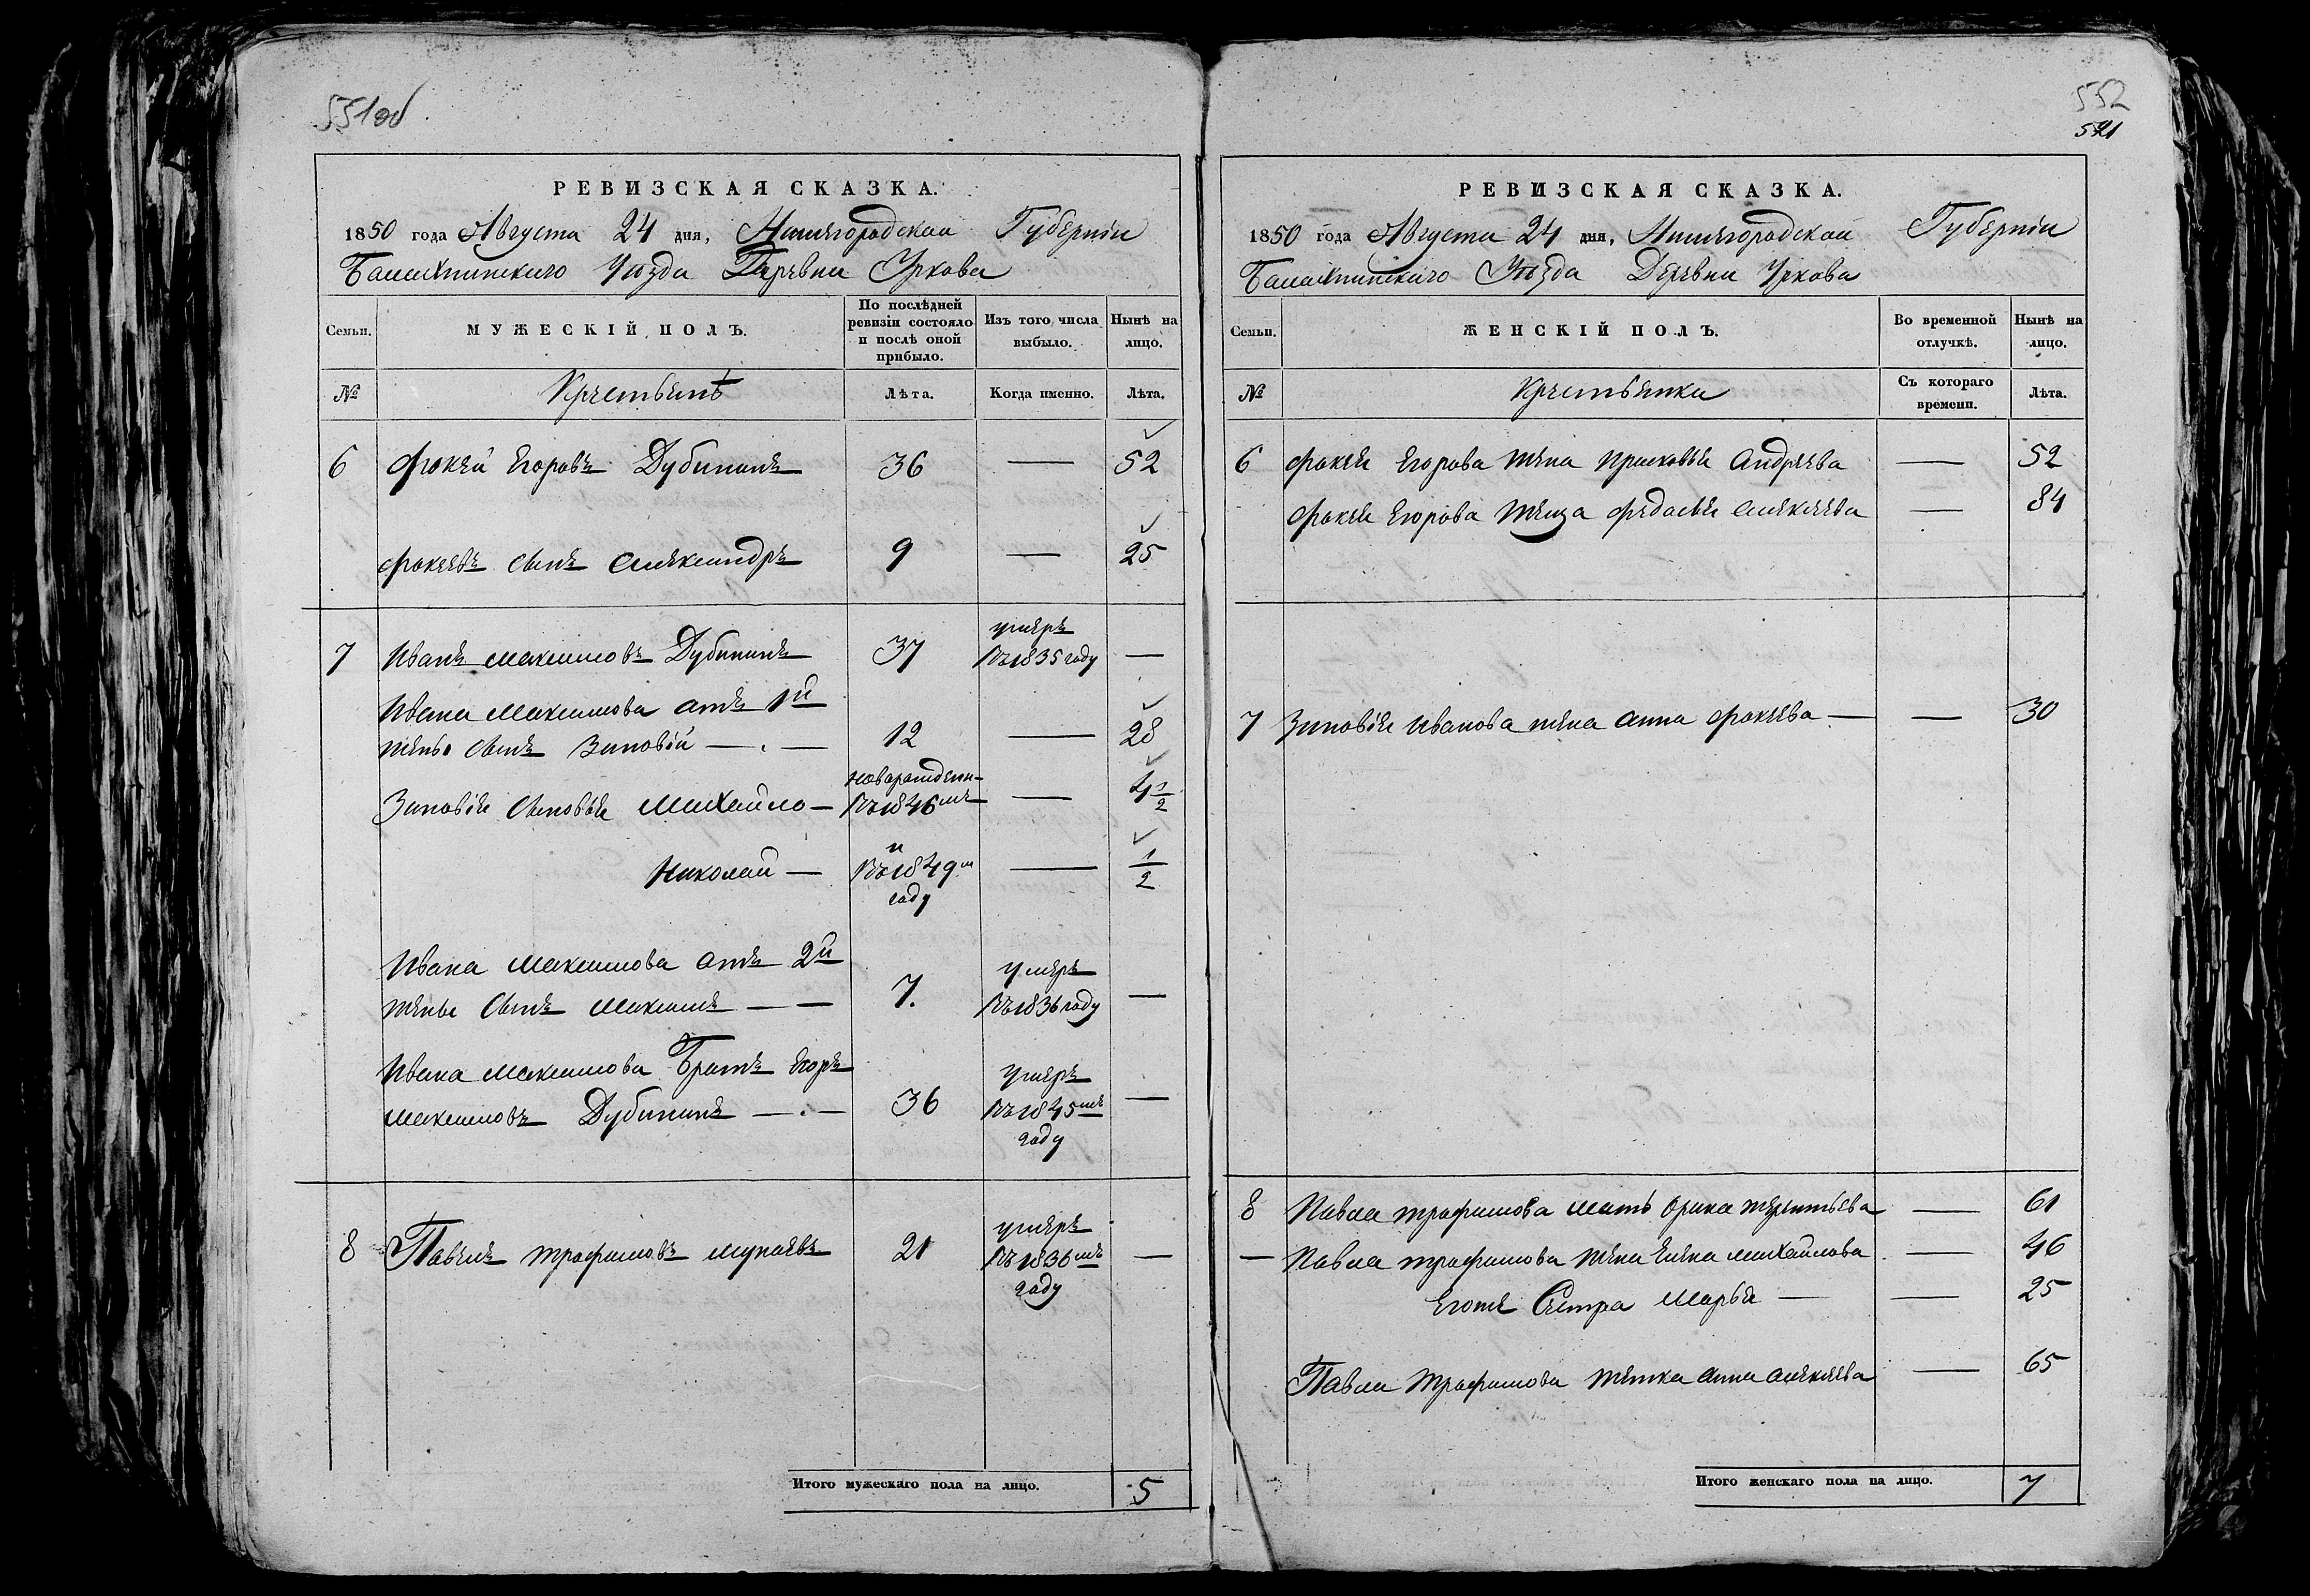 551об
РЕВИЗСКАЯ СКАЗКА.
1850 года Августа 24 дня, Нижегородской Губерніи
Балахнинскаго Уѣзда Деревни Уркова
Семьи.
МУЖЕСКІЙ ПОЛЪ.
По послѣдней ревизіи состояло и послѣ оной прибыло.
Изъ того числа выбыло.
Нынѣ на лицо.
№
Крестьянъ
Лѣта.
Когда именно.
Лѣта.
6 Фокей Егоровъ Дубининъ 36 — 52
Фокеевъ сынъ Александръ 9 — 25
7 Иванъ Максимовъ Дубининъ 37 умеръ въ 1835 году —
Ивана Максимова отъ 1й
жены сынъ Зиновій 12 — 28
Зиновія сыновья Михайло новарожден въ 1846мъ — 4 1/2
Николай и въ 1849м году — 1/2
Ивана Максимова отъ 2й
жены сынъ Максимъ 7. умеръ въ 1836 году —
Ивана Максимова Братъ Егоръ
Максимовъ Дубининъ 36 умеръ въ 1845мъ году —
8 Павелъ Трофимовъ 21 умеръ въ 1836мъ году —
Итого мужескаго пола на лицо. 5
552
541
РЕВИЗСКАЯ СКАЗКА.
1850 года Августа 24 дня, Нижегородской Губерніи
Балахнинскаго Уѣзда Деревни Уркова
Семьи.
ЖЕНСКІЙ ПОЛЪ.
Во временной отлучкѣ.
Нынѣ на лицо.
№
Крестьянка
Съ котораго времени.
Лѣта.
6 Фокея Егорова жена Прасковья Андреева — 52
Фокея Егорова теща Федосья Алексеева — 84
7 Зиновія Иванова жена Анна Фокеева — — 30
8 Павла Трофимова мать Орина Терентьева — 61
— Павла Трофимова жена Елена Михайлова — 46
Егоже Сестра Марья — — 25
Павла Трофимова тетка Анна Алексеева — 65
Итого женскаго пола на лицо. 7